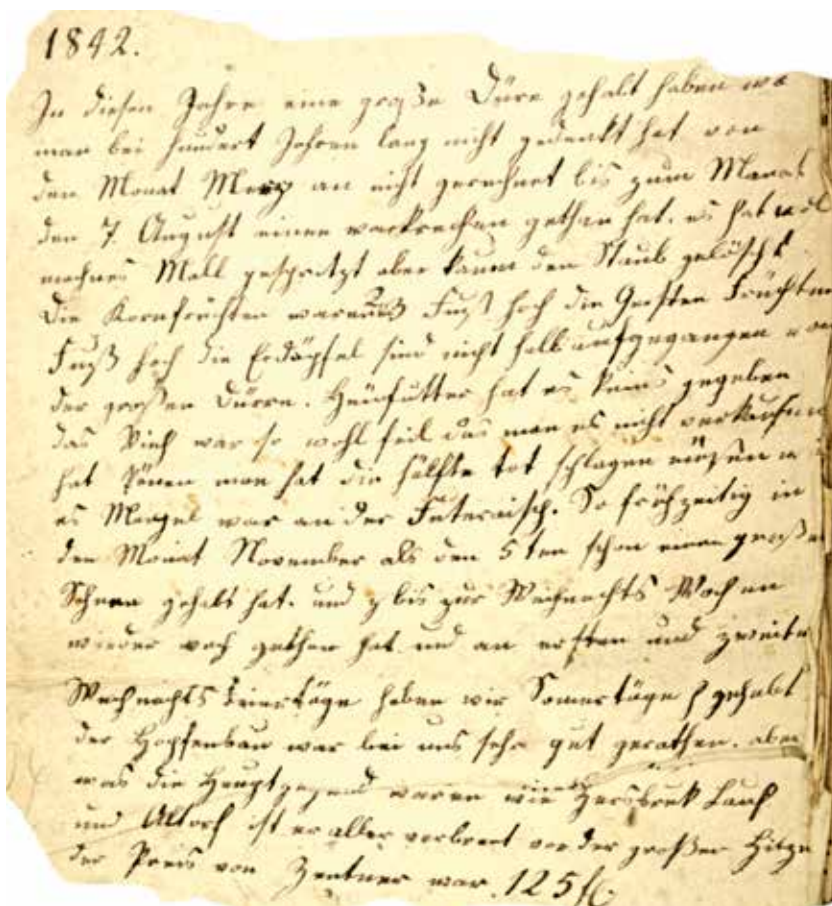 1842.
In diesen Jahre eine große Dürre gehabt haben wo
man bei hundert Jahren lang nicht gedenkt hat von
den Monat Merz an nicht gerechnet bis zum Monat
den 7. August einen gethan hat. es hat wol
manches Mall gespritzt aber kaum den Staub gelöscht
die Kornfrüchten waren 2 Fuß hoch die Gersten Früchten
Fuß hoch die Erdäpfel sind nicht halb aufgegangen von
der großen Dürre. Heufutter hat es keins gegeben
das Vieh war so wohl feil das man es nicht verkaufen
hat könen man hat die hälfte tot schlagen müßen
es Mangel war an der Futer. So frühzeitig in
den Monat November als den 5ten schon einen großen
Schnee gehabt hat. und bis zur Weihnachts Wochen
wieder gethan hat und an ersten und zweiten
Weihnachts Feiertäge haben wir Somertäge gehabt
der Hopfenbau war bei uns sehr gut gerathen. aber
was die Hauptgegend waren wie Hersbruk Lauf
und Altorf ist er aller verbrent vor der großer Hitze
der Preis von Zentner war 125 fl.